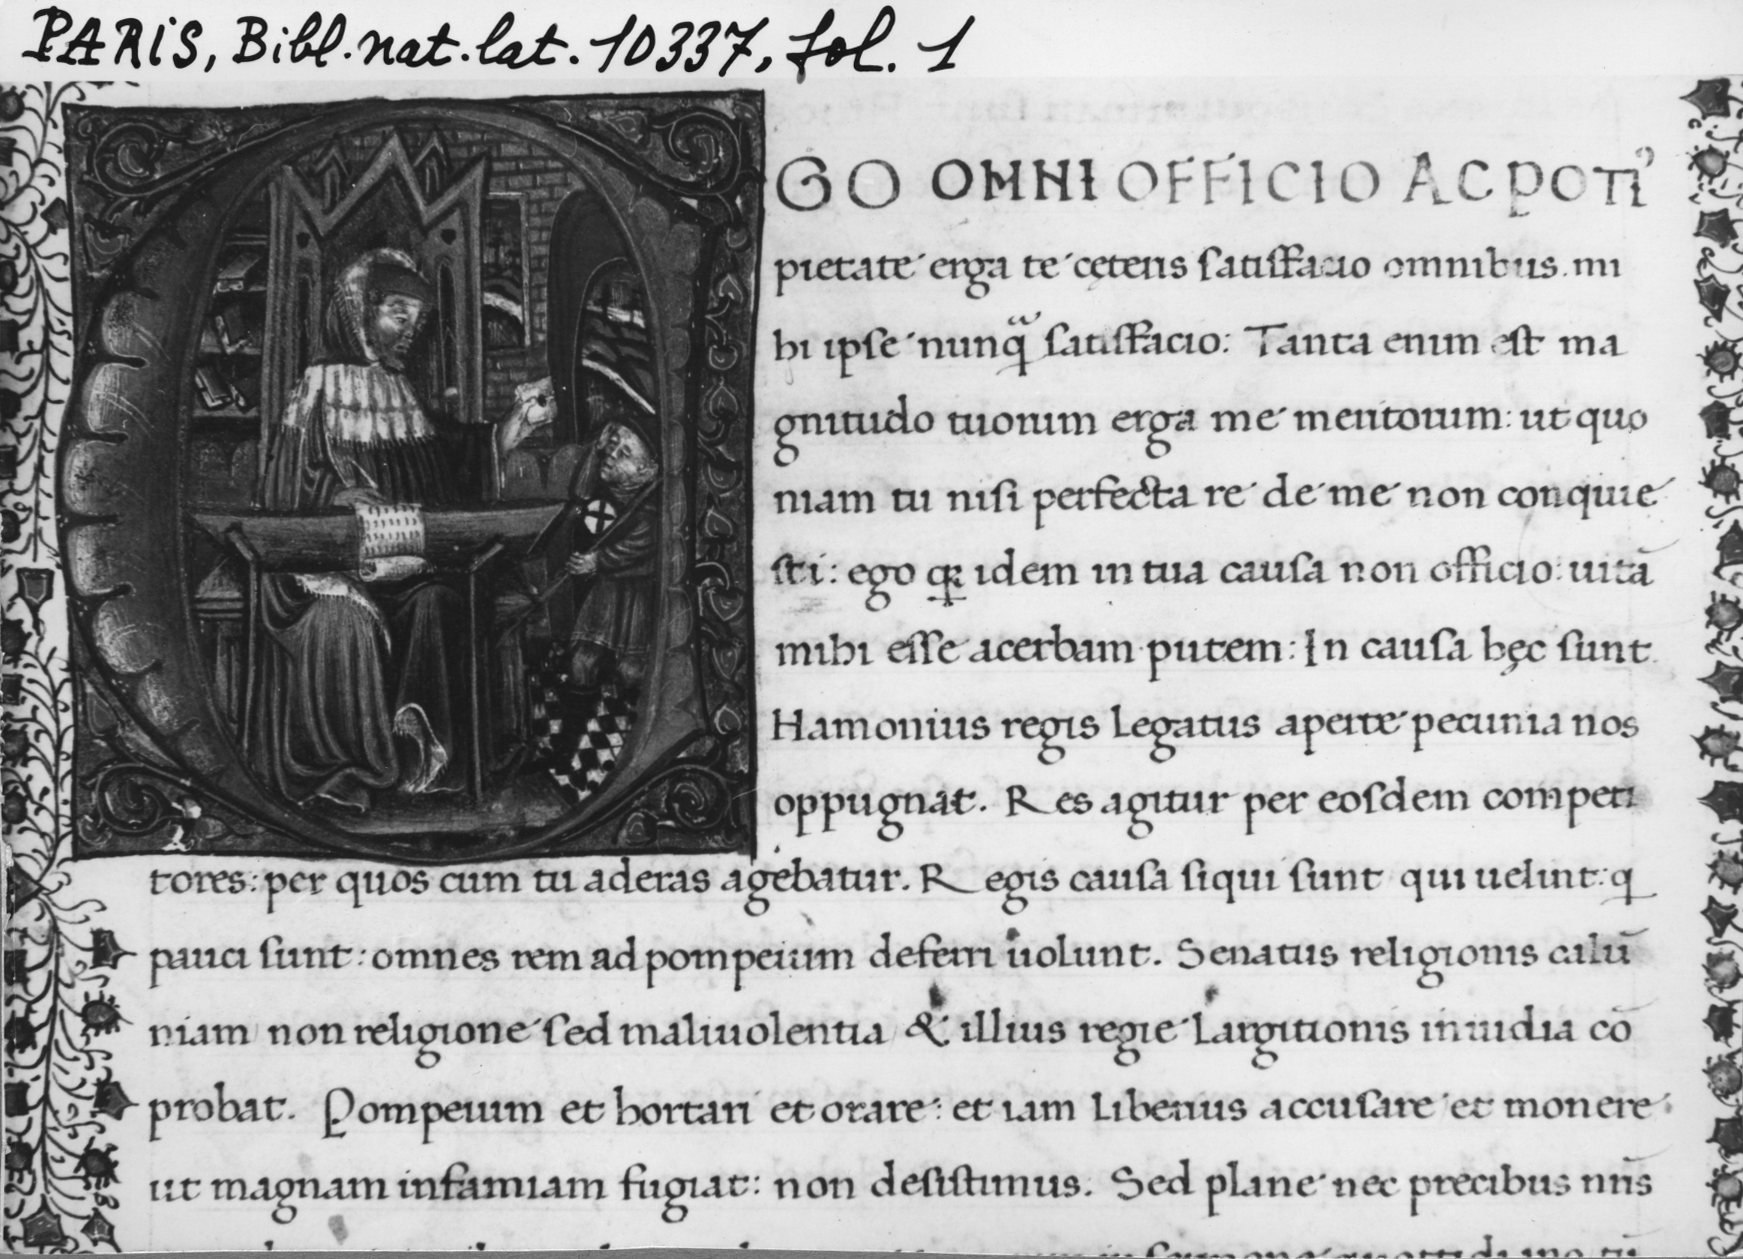 PARIS, Bibl. nat. lat. 10337, fol. 1
EGO OMNI OFFICIO AC POTI’
pietate erga te cęteris satisfacio omnibus. mi
hi ipse nunq̃ satisfacio: Tanta enim est ma
gnitudo tuorum erga me meritorum: ut quo
niam tu nisi perfecta re de me non conquie
sti: ego qꝛ idem in tua causa non officio: uitā
mihi esse acerbam putem: In causa hęc sunt
Hamonius regis legatus aperte pecunia nos
oppugnat. Res agitur per eosdem competi
tores: per quos cum tu aderas agebatur. Regis causa siqui sunt qui uelint: q
pauci sunt: omnes rem ad pompeium deferri uolunt. Senatus religionis calū
niam non religione sed maliuolentia & illius regie largitionis inuidia cō
probat. Pompeium et hortari et orare: et iam liberius accusare et monere
ut magnam infamiam fugiat: non desistimus. Sed plane nec precibus nr̄is